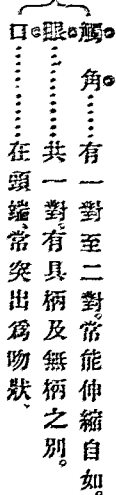 觸角……有一對至二對。常能伸縮自如。
眼……共一對。有具柄及無柄之別。
口……在頭端、常突出爲吻狀、